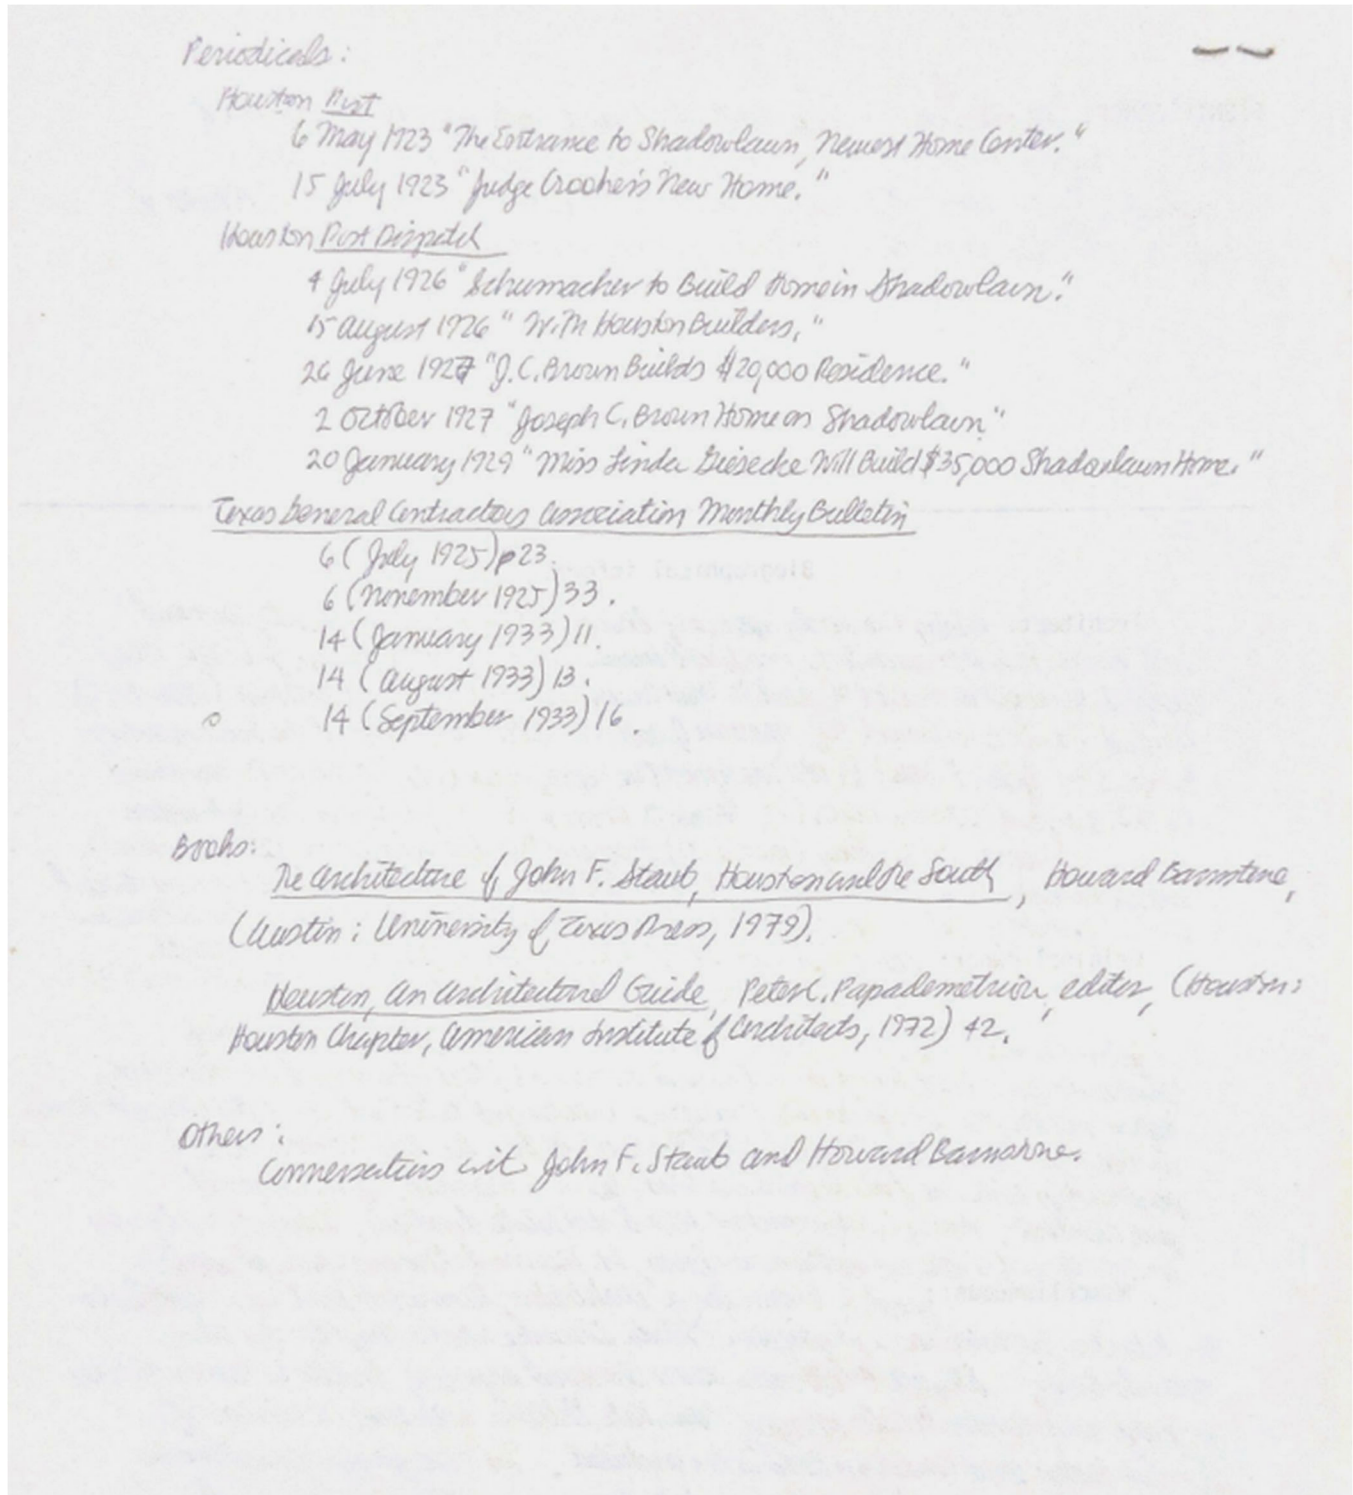 Periodicals:
Houston Post
6 May 1923 "The Entrance to Shadowlawn, Newest Home Center."
15 July 1923 "Judge Crooker's New Home."
Houston Post Dispatch
4 July 1926 "Schumacher to Build Home in Shadowlawn."
15 August 1926 "With Houston Builders,"
26 June 1927 "J.C. Brown Builds $20,000 Residence."
2 October 1927 "Joseph C. Brown Home on Shadowlawn"
20 January 1929 "Miss Linda Giesecke Will Build $35,000 Shadowlawn Home."
Texas General Contractors Association Monthly Bulletin
6 (July 1925) p 23.
6 (November 1925) 33.
14 (January 1933) 11.
14 (August 1933) 13.
14 (September 1933) 16.
Books:
The Architecture of John F. Staub, Houston and the South, Howard Barnstone,
(Austin: University of Texas Press, 1979).
Houston, An Architectural Guide, Peter C. Papademetriou, editor, (Houston:
Houston Chapter, American Institute of Architects, 1972) 42.
Others:
Conversations with John F. Staub and Howard Barnstone.